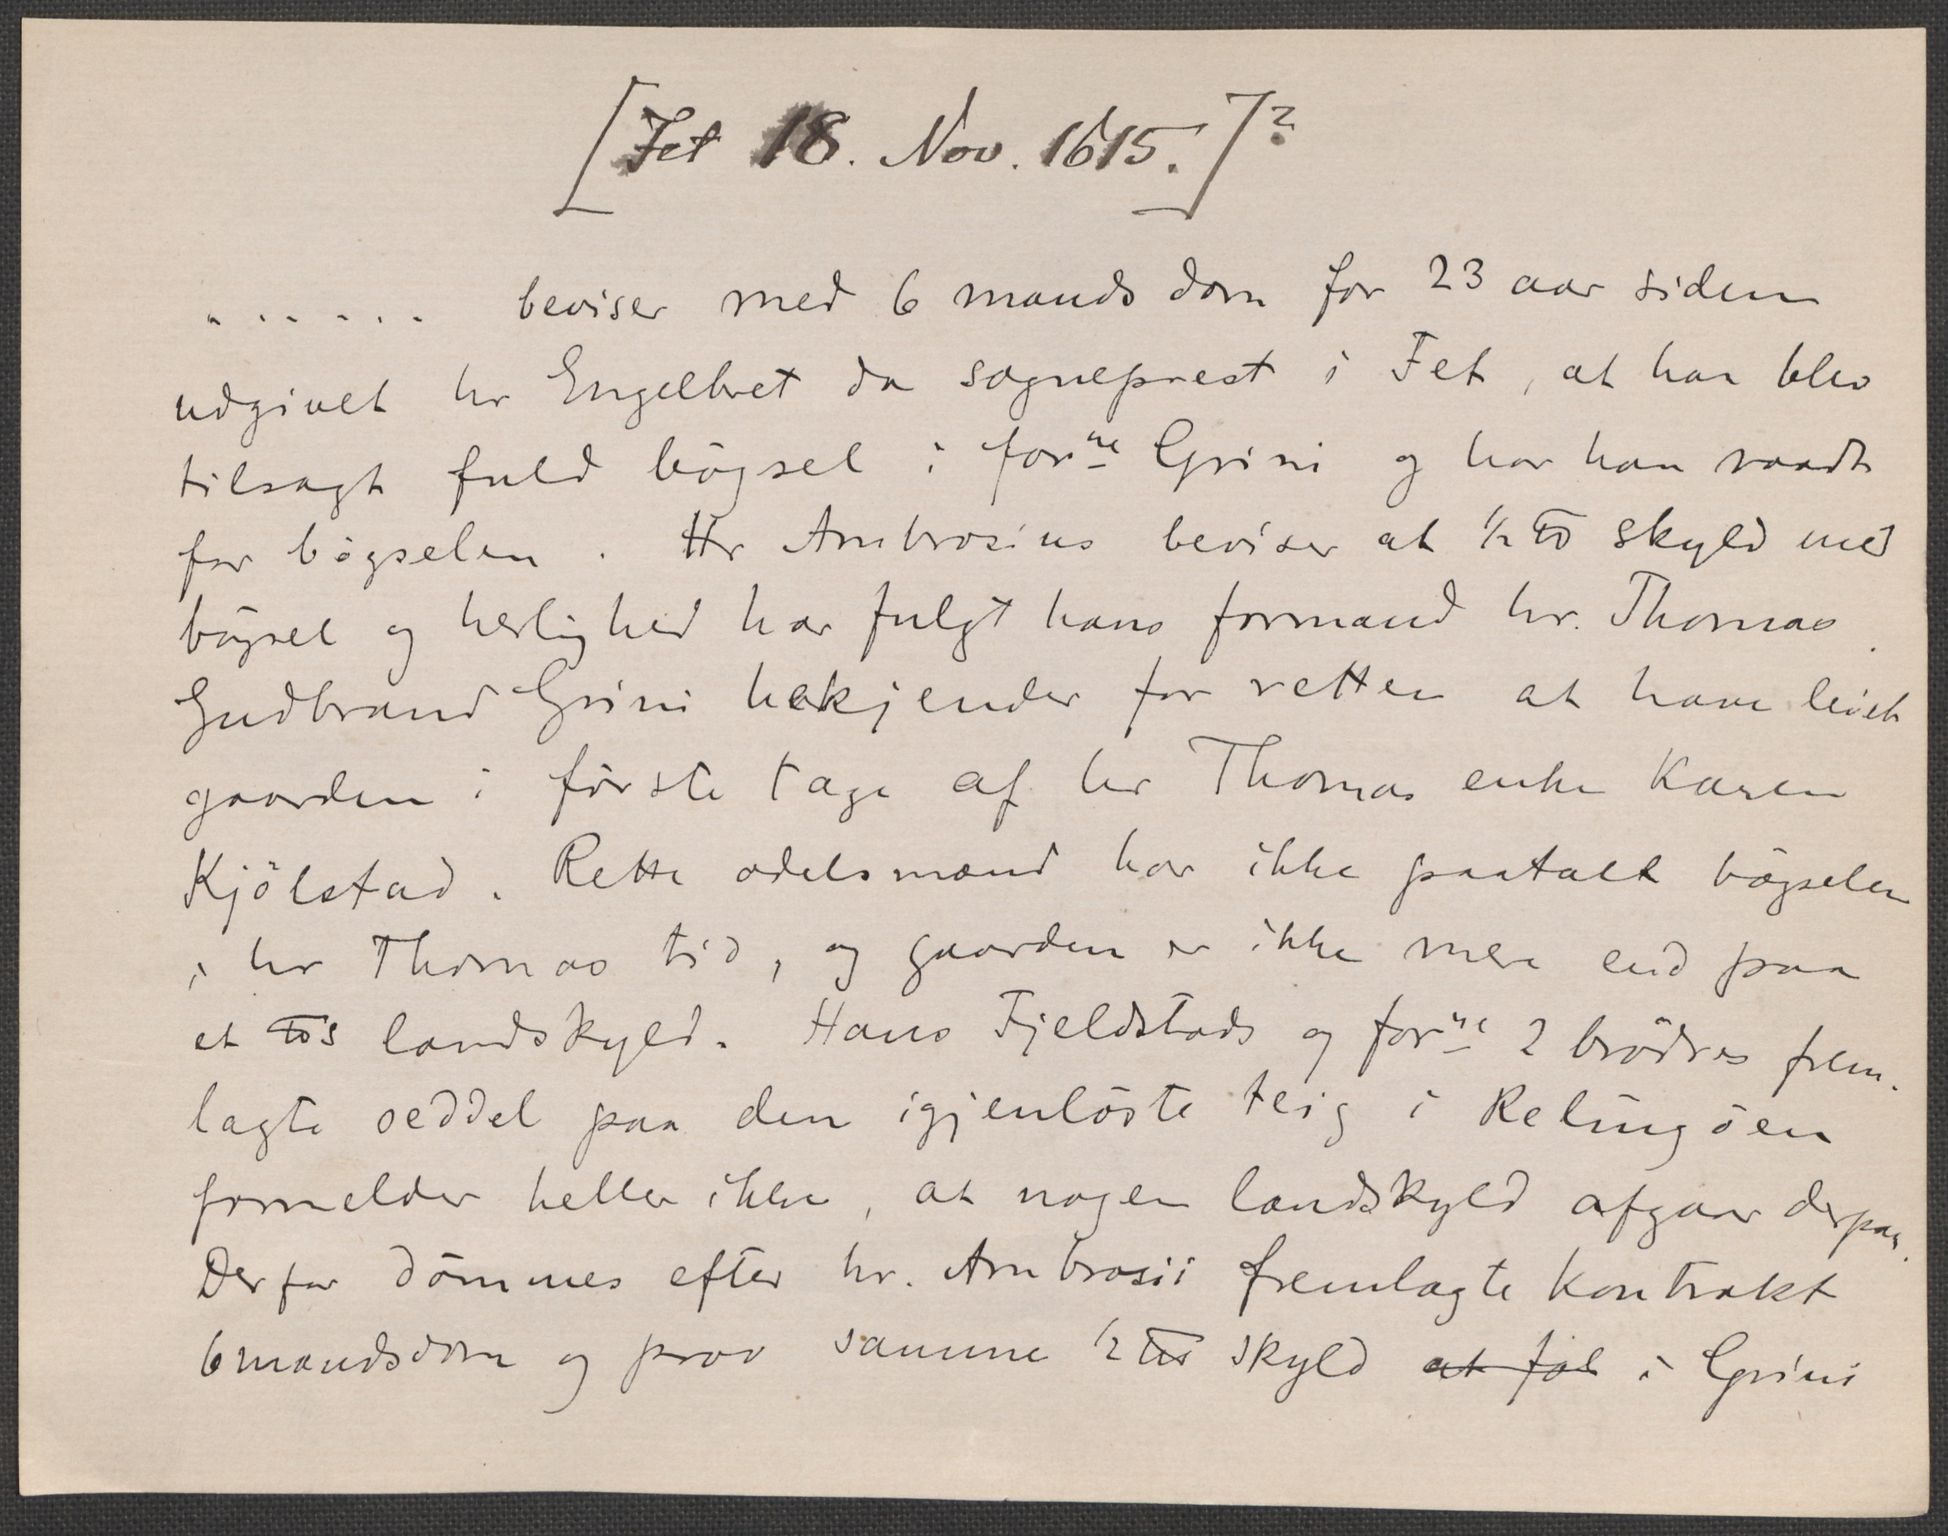 [Fet 18. Nov. 1615.]?
. . . . . . beviser med 6 mands dom for 23 aar siden
udgivet hr Engelbret da sogneprest i Fet, at han blev
tilsagt fuld bögsel i forne Grini og har han raadt
for bögselen. Hr Ambrosius beviser at 1/2 ℔ skyld med
bögsel og herlighed har fulgt hans formand hr. Thomas.
Gudbrand Grini bekjender for retten at have leiet
gaarden i förste tage af hr Thomas enke Karen
Kjölstad. Rette odelsmænd har ikke paatalt bögselen
i hr Thomas tid, og gaarden er ikke mere end paa
et ℔s landskyld. Hans Fjeldstads og forne 2 brödres frem-
lagte seddel paa den igjenlöste teig i Relingöen
formelder heller ikke, at nogen landskyld afgaar derpaa.
Derfor dömmes efter hr. Ambrosii fremlagte Kontrakt
6mandsdom og prov samme 1/2 ℔ skyld at föl i Grini